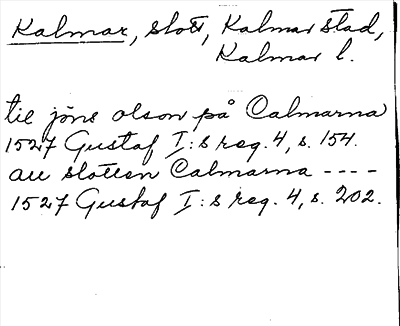 Kalmar, slott, Kalmar stad,
Kalmar l.
til jöns olson på Calmarna
1527 Gustaf I:s reg. 4, s. 154.
au slotten Calmarna ----
1527 Gustaf I:s reg. 4, s. 202.